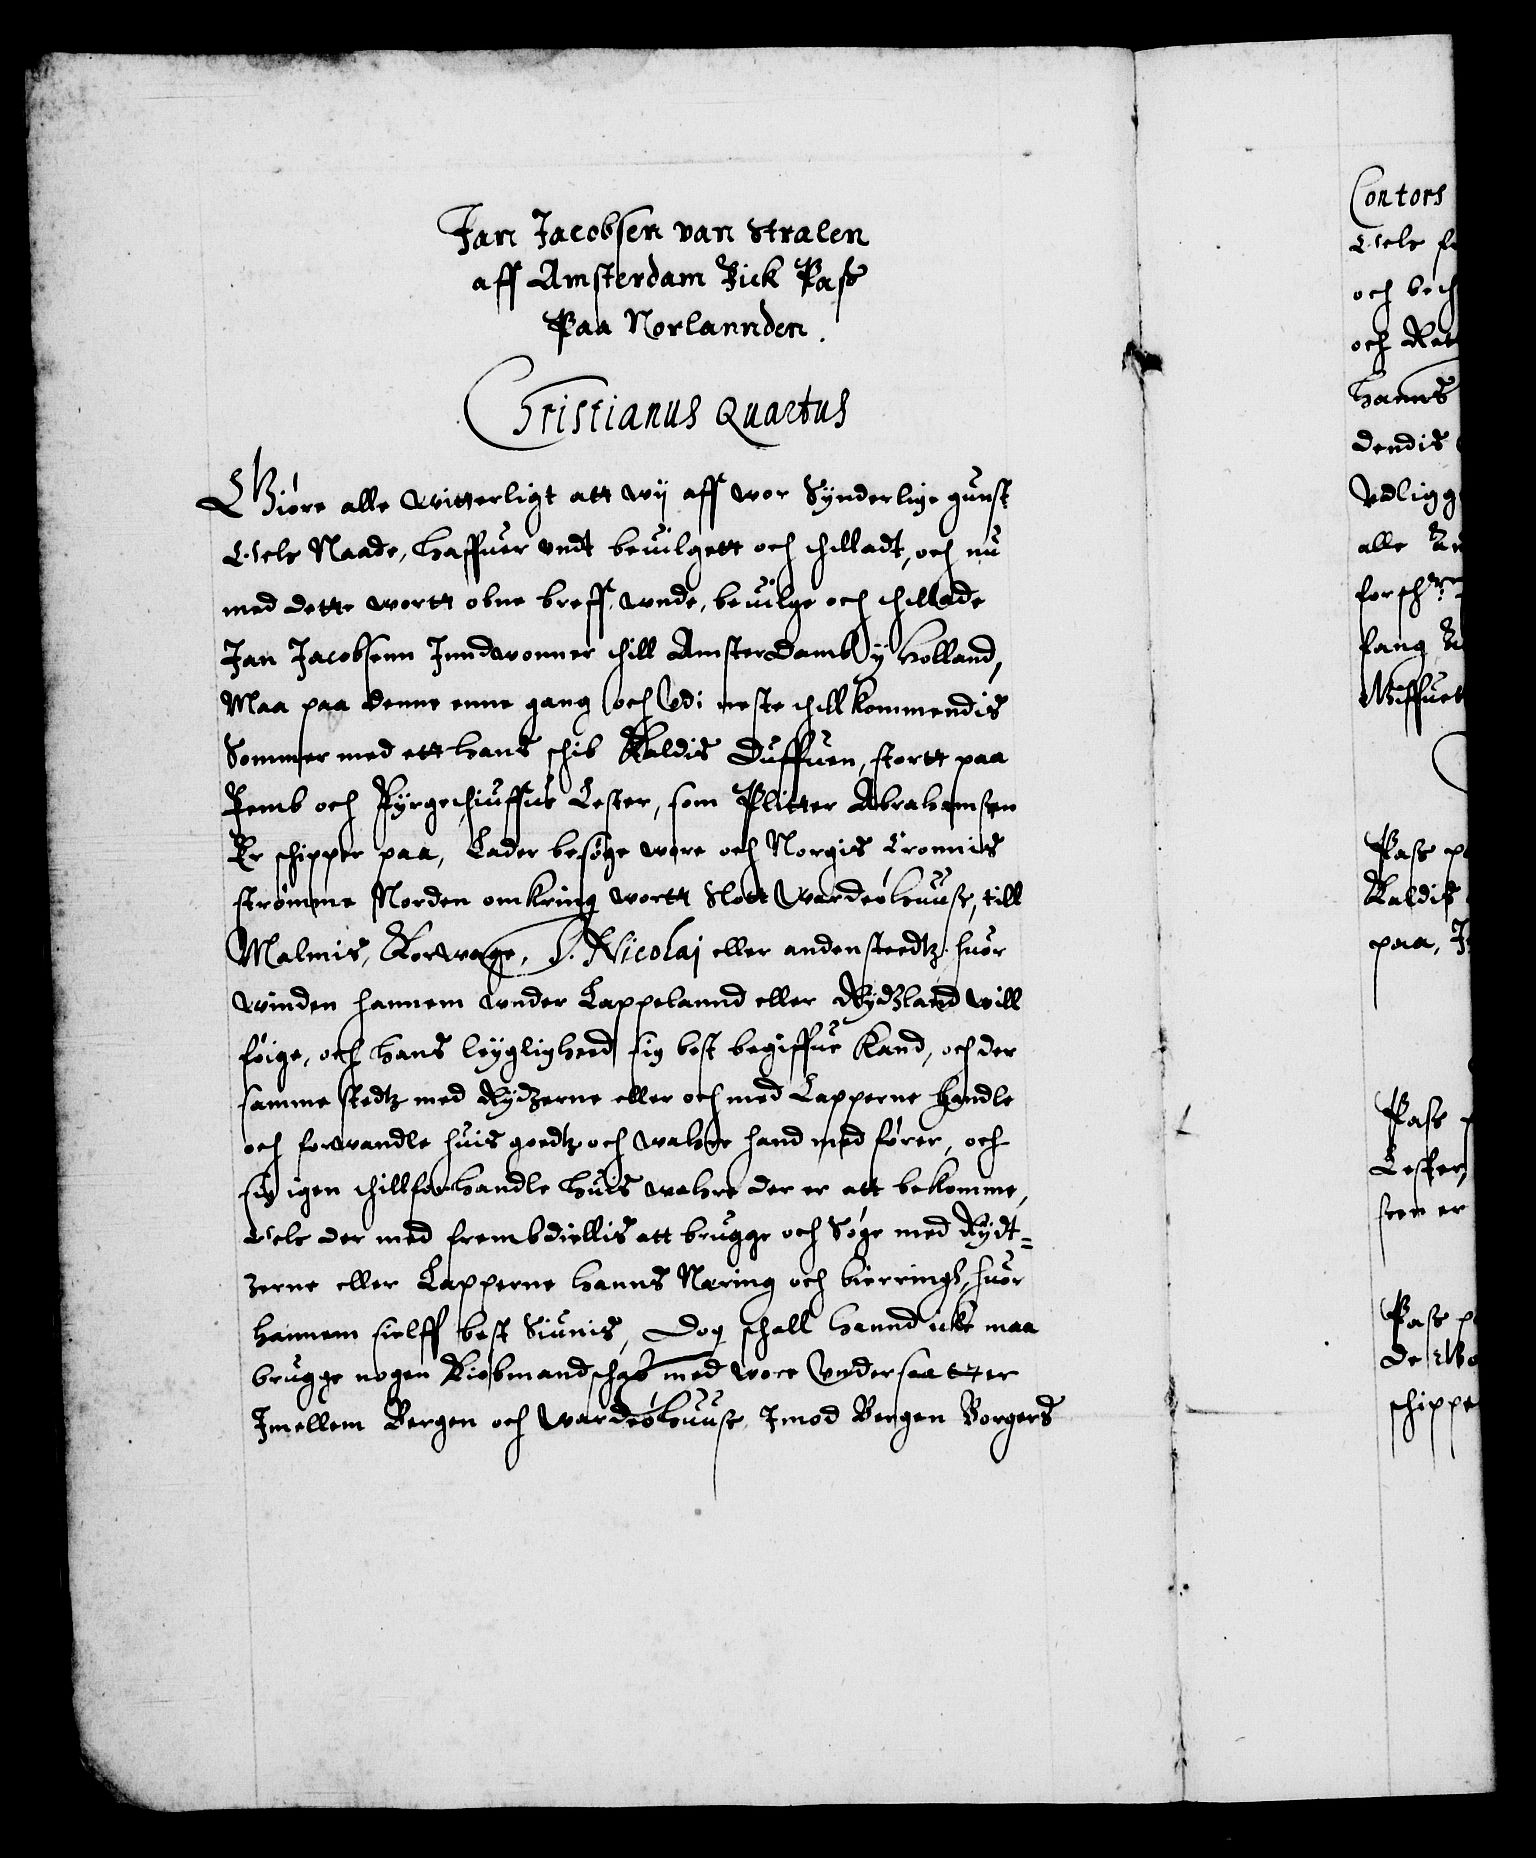 Jan Jacobsen van Stralen
aff Amsterdam Fick Pass
Paa Norlannden.
Christianus Quartus
Giøre alle witterligt att wij aff wor Synderlige gunst
och Naade, haffuer undt beuilgett och thilladt, och nu
med dette wortt obne breff, unde, beuilge och thillade
Jan Jacobsenn Inndwonner thill Amsterdamb y Holland,
Maa paa denne enne gang och Udi neste thillkommendis
Sommer med ett hans schib Kaldis Duffuen, stortt paa
Femb och Fyrgethiuffue Lester, som Plitter Abrahamsen
Er schipper paa, Lader besøge wore och Norgis Cronnis
strømme Norden omkring wortt Slott Wardeøhuuse, till
Malmis, Korwage, S. Nicolaj eller andensteedtz huor
winden hannem under Lappelannd eller Rydzland will
føige, och hans leyglighed sig best begiffue Kand, och der
samme stedtz med Rydzerne eller och med Lapperne handle
och forwandle huis goedtz och wahre hand med fører, och
sig igen thillforhandle huis wahre der er att bekomme,
och der med frembdiellis att brugge och Søge med Rydt=
zerne eller Lapperne hanns Næring och bierring, huor
hannem sielff best Siunis, Dog schall hannd icke maa
brugge nogen Kiøbmandschab med wore Undersaatter
Imellem Bergen och Wardeøhuuse Imod Bergen Borgers
Contors
och
och
Hanns
dendis
Udligg
alle
fang
Pass
Kaldis
paa,
Pass
Lester,
sen er
Pass
schippe